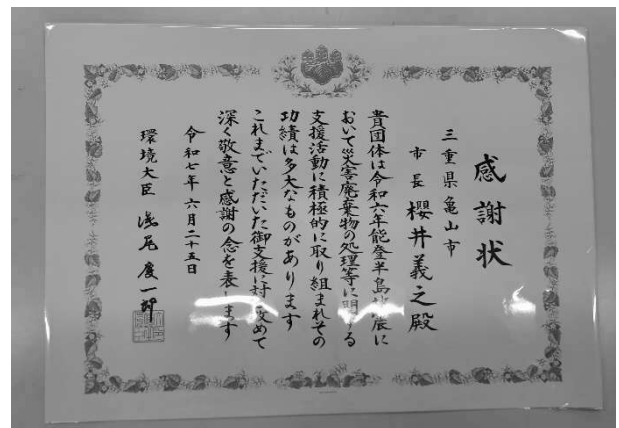 感謝状
三重県亀山市
市長 櫻井義之殿
貴団体は令和六年能登半島地震に
おいて災害廃棄物の処理等に関する
支援活動に積極的に取り組まれその
功績は多大なものがあります
これまでいただいた御支援に対し改めて
深く敬意と感謝の念を表します
令和七年六月二十五日
環境大臣 浅尾慶一郎